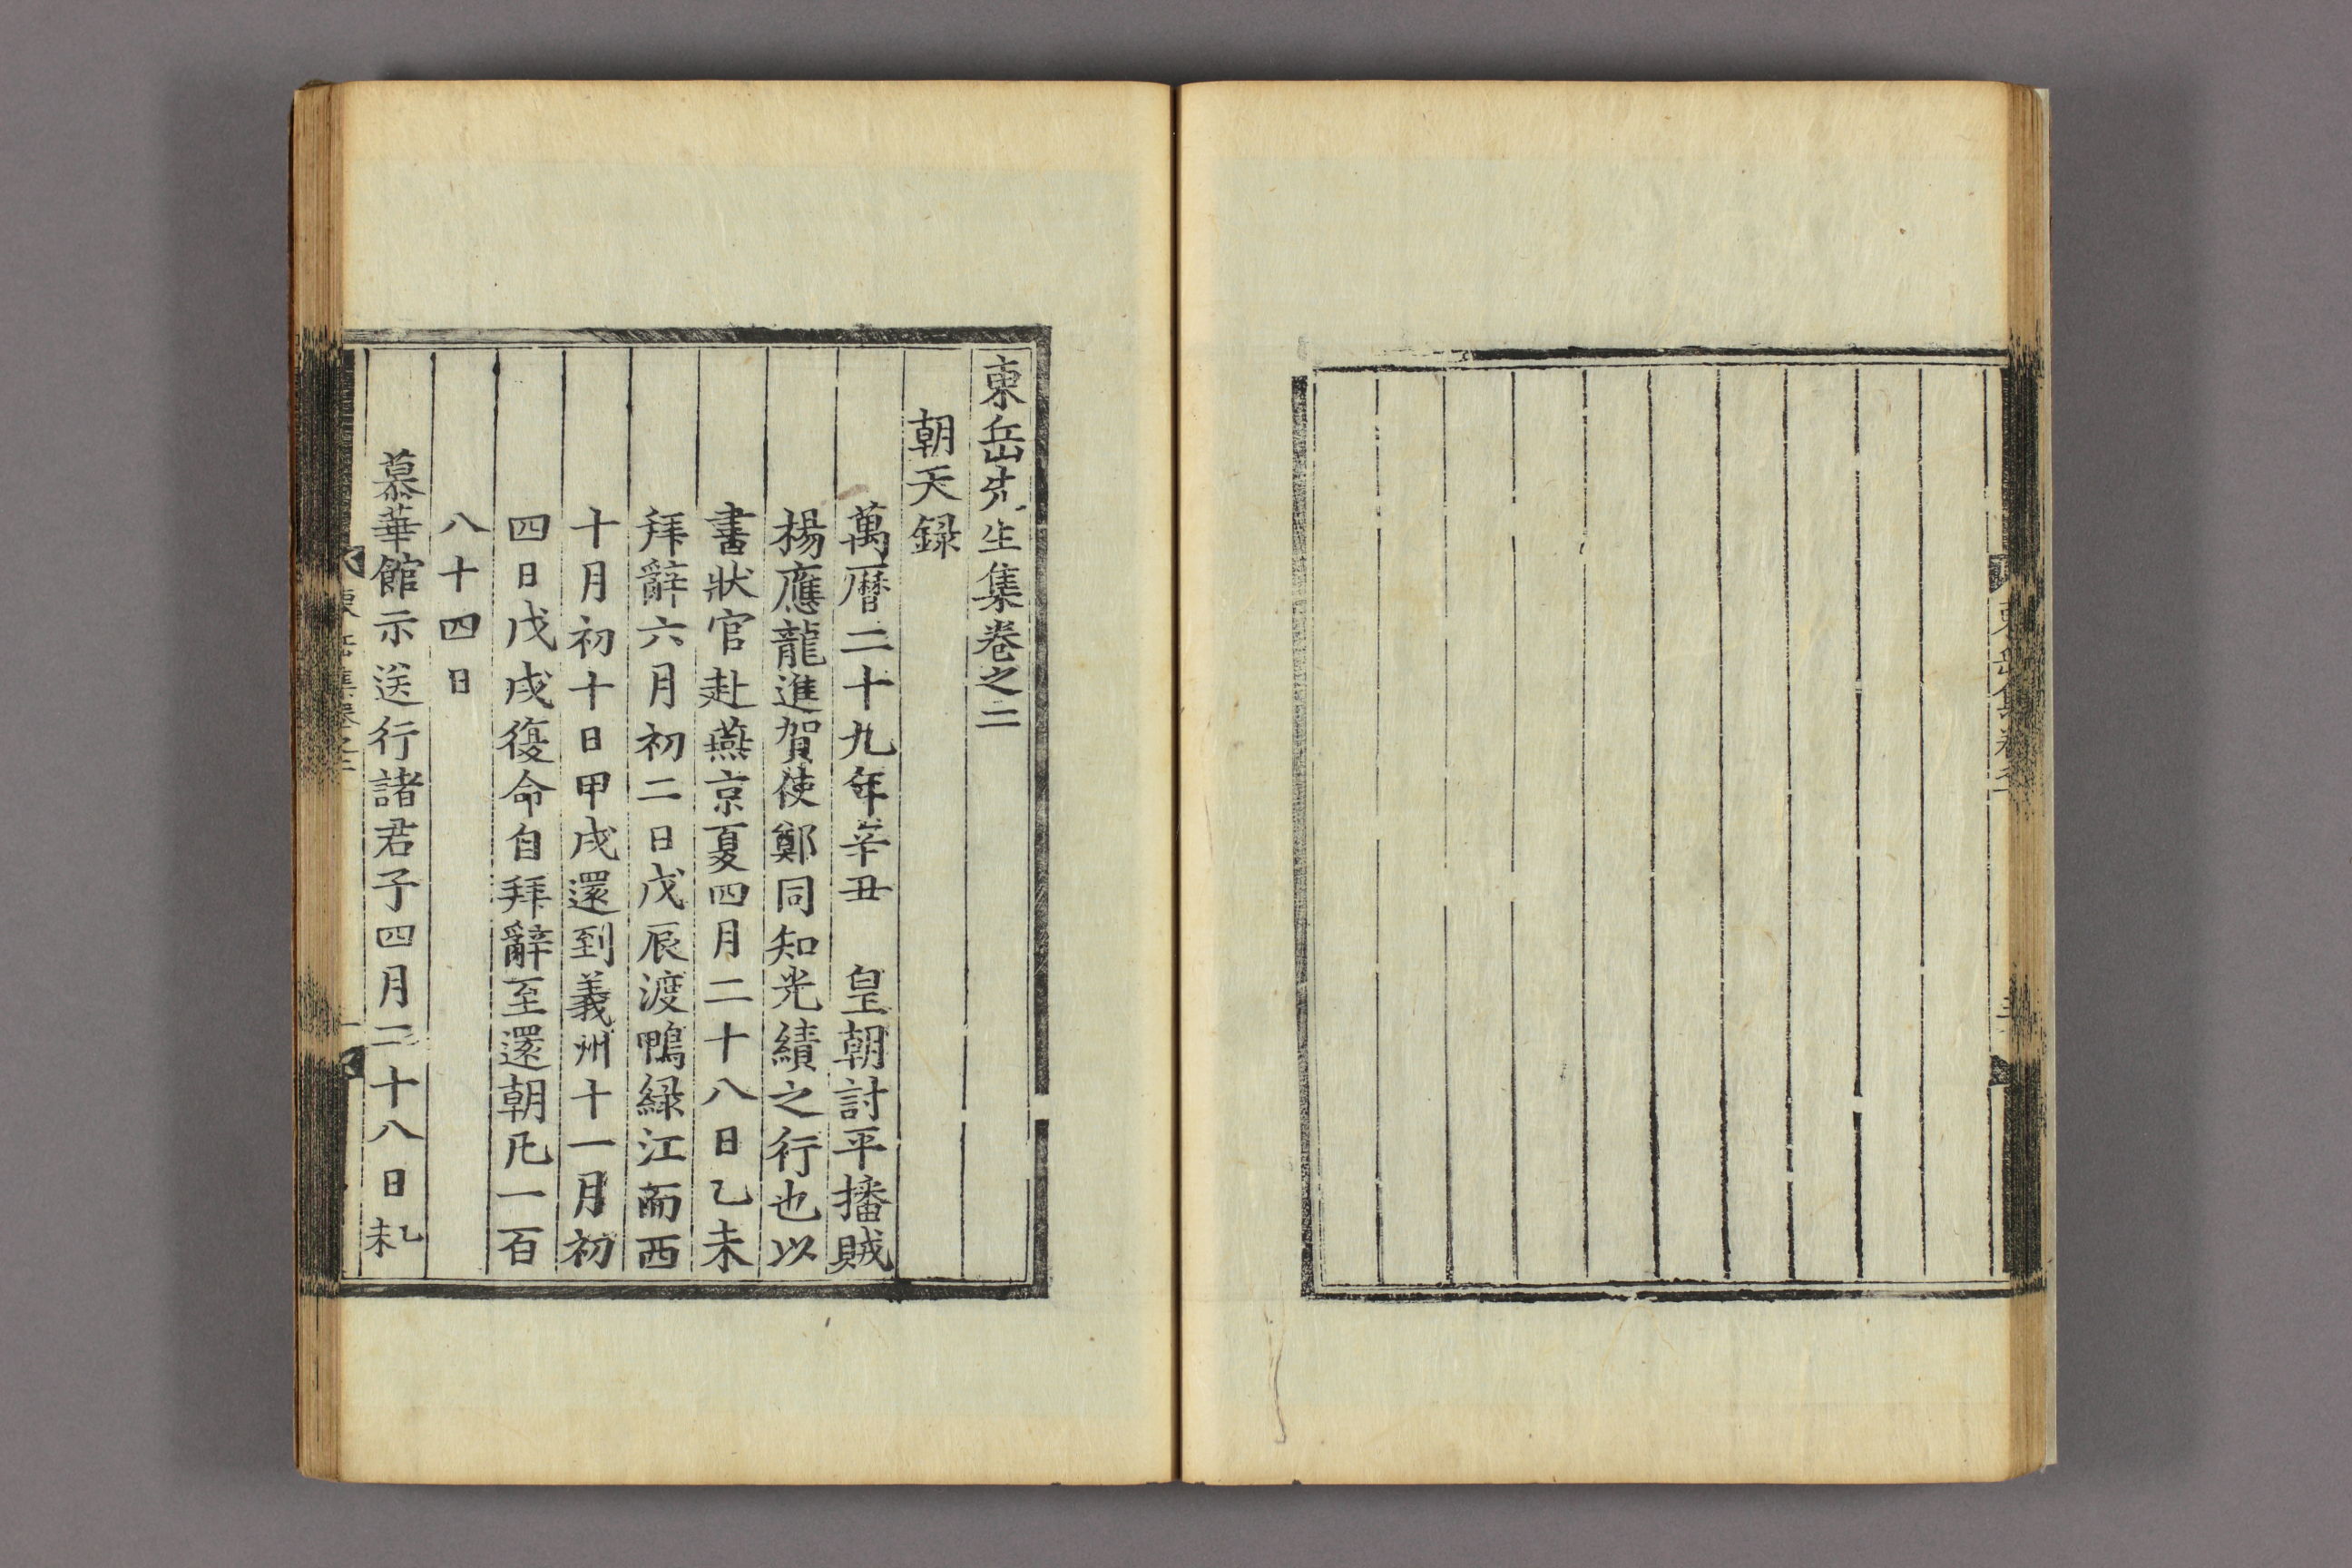 東岳先生集卷之二
朝天録
萬曆二十九年辛丑　皇朝討平播賊
楊應龍進賀使鄭同知光績之行也以
書狀官赴燕京夏四月二十八日乙未
拜辭六月初二日戊辰渡鴨綠江而西
十月初十日甲戌還到義州十一月初
四日戊戌復命自拜辭至還朝凡一百
八十四日
慕華館示送行諸君子四月二十八日乙未